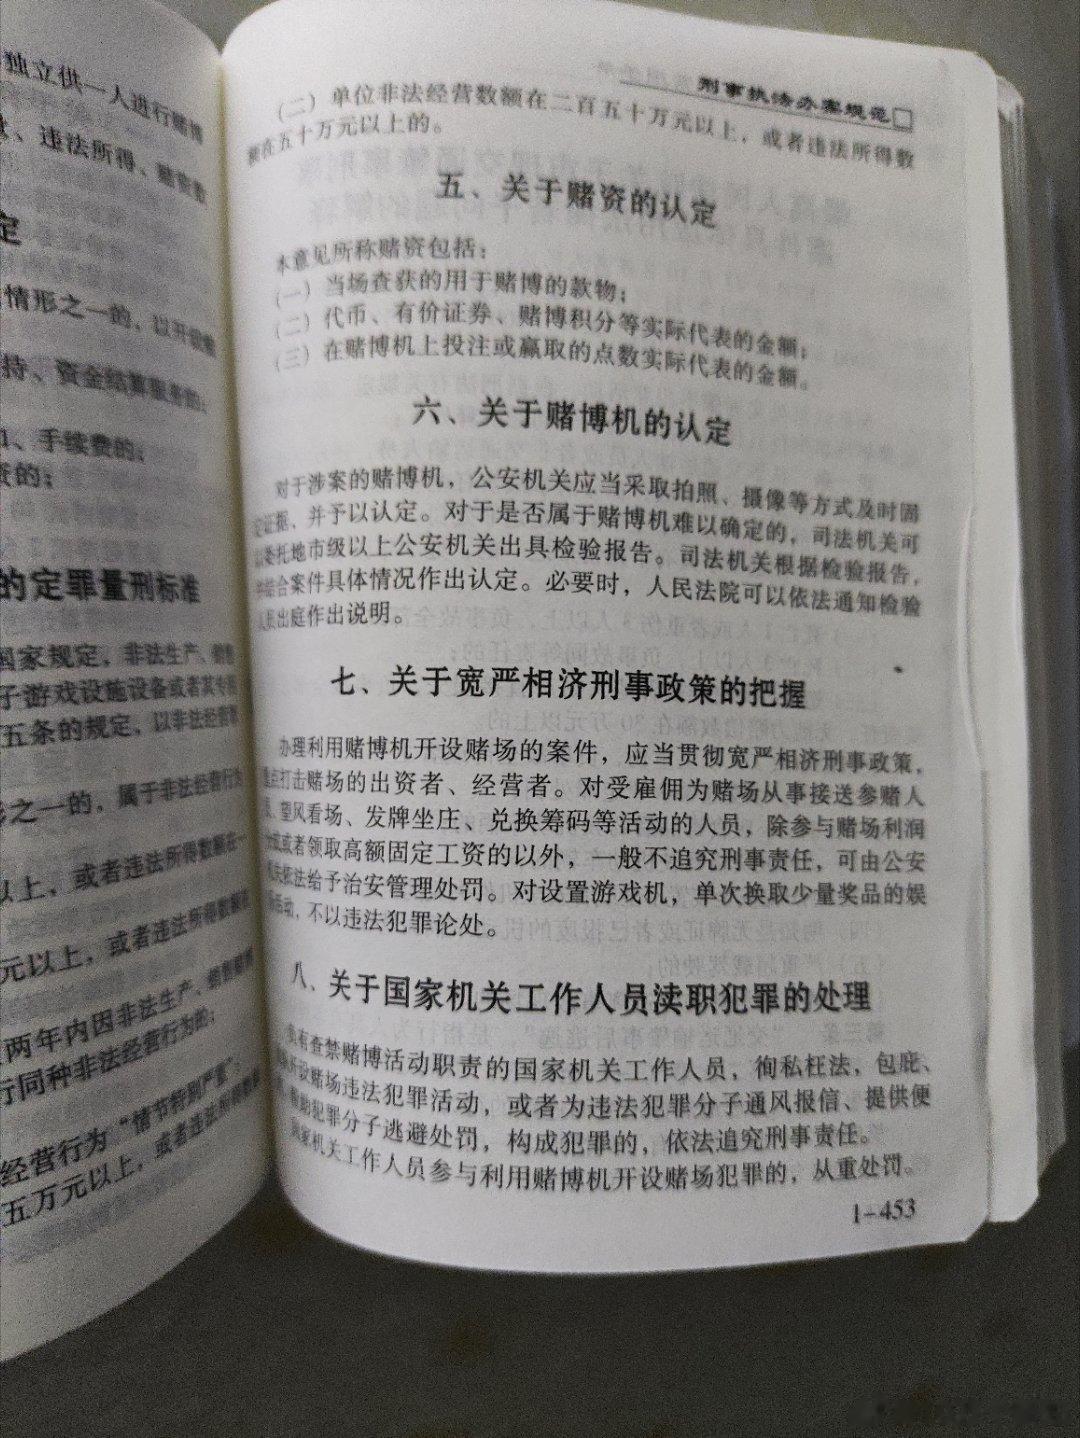 独立供一人进行赌博
、违法所得、赌资数
定
情形之一的，以开设赌
持、资金结算服务的；
、手续费的；
资的；
的定罪量刑标准
国家规定，非法生产、销售
子游戏设施设备或者其专用
五条的规定，以非法经营罪
形之一的，属于非法经营行为
以上，或者违法所得数额在
元以上，或者违法所得数额在
两年内因非法生产、销售赌博
行同种非法经营行为的；
经营行为“情节特别严重”：
五万元以上，或者违法所得数额
刑事执法办案规范□
（二）单位非法经营数额在二百五十万元以上，或者违法所得数
额在五十万元以上的。
五、关于赌资的认定
本意见所称赌资包括：
（一）当场查获的用于赌博的款物；
（二）代币、有价证券、赌博积分等实际代表的金额；
（三）在赌博机上投注或赢取的点数实际代表的金额。
六、关于赌博机的认定
对于涉案的赌博机，公安机关应当采取拍照、摄像等方式及时固
定证据，并予以认定。对于是否属于赌博机难以确定的，司法机关可
以委托地市级以上公安机关出具检验报告。司法机关根据检验报告，
并结合案件具体情况作出认定。必要时，人民法院可以依法通知检验
人员出庭作出说明。
七、关于宽严相济刑事政策的把握
办理利用赌博机开设赌场的案件，应当贯彻宽严相济刑事政策，
重点打击赌场的出资者、经营者。对受雇佣为赌场从事接送参赌人
员、望风看场、发牌坐庄、兑换筹码等活动的人员，除参与赌场利润
分成或者领取高额固定工资的以外，一般不追究刑事责任，可由公安
机关依法给予治安管理处罚。对设置游戏机，单次换取少量奖品的娱
乐活动，不以违法犯罪论处。
八、关于国家机关工作人员渎职犯罪的处理
负有查禁赌博活动职责的国家机关工作人员，徇私枉法，包庇、
放纵开设赌场违法犯罪活动，或者为违法犯罪分子通风报信、提供便
利、帮助犯罪分子逃避处罚，构成犯罪的，依法追究刑事责任。
国家机关工作人员参与利用赌博机开设赌场犯罪的，从重处罚。
1-453